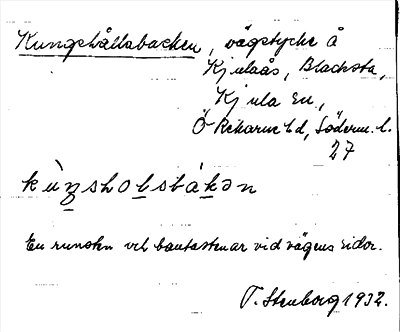 Kungshållsbacken, vägstycke å
Kjulaås, Blacksta,
Kjula sn,
Ö Rekarne hd, Söderm. l.
27
kùngsholsbákən
En runsten och bautastenar vid vägens sidor.
T. Stenborg 1932.